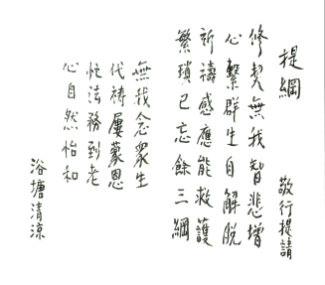 提綱
敬行提請
修契無我智悲增
心繫群生自解脫
祈禱感應能救護
繁瑣已忘餘三綱
無我念眾生
代禱屢蒙恩
忙法務到老
心自然怡和
浴塘清涼